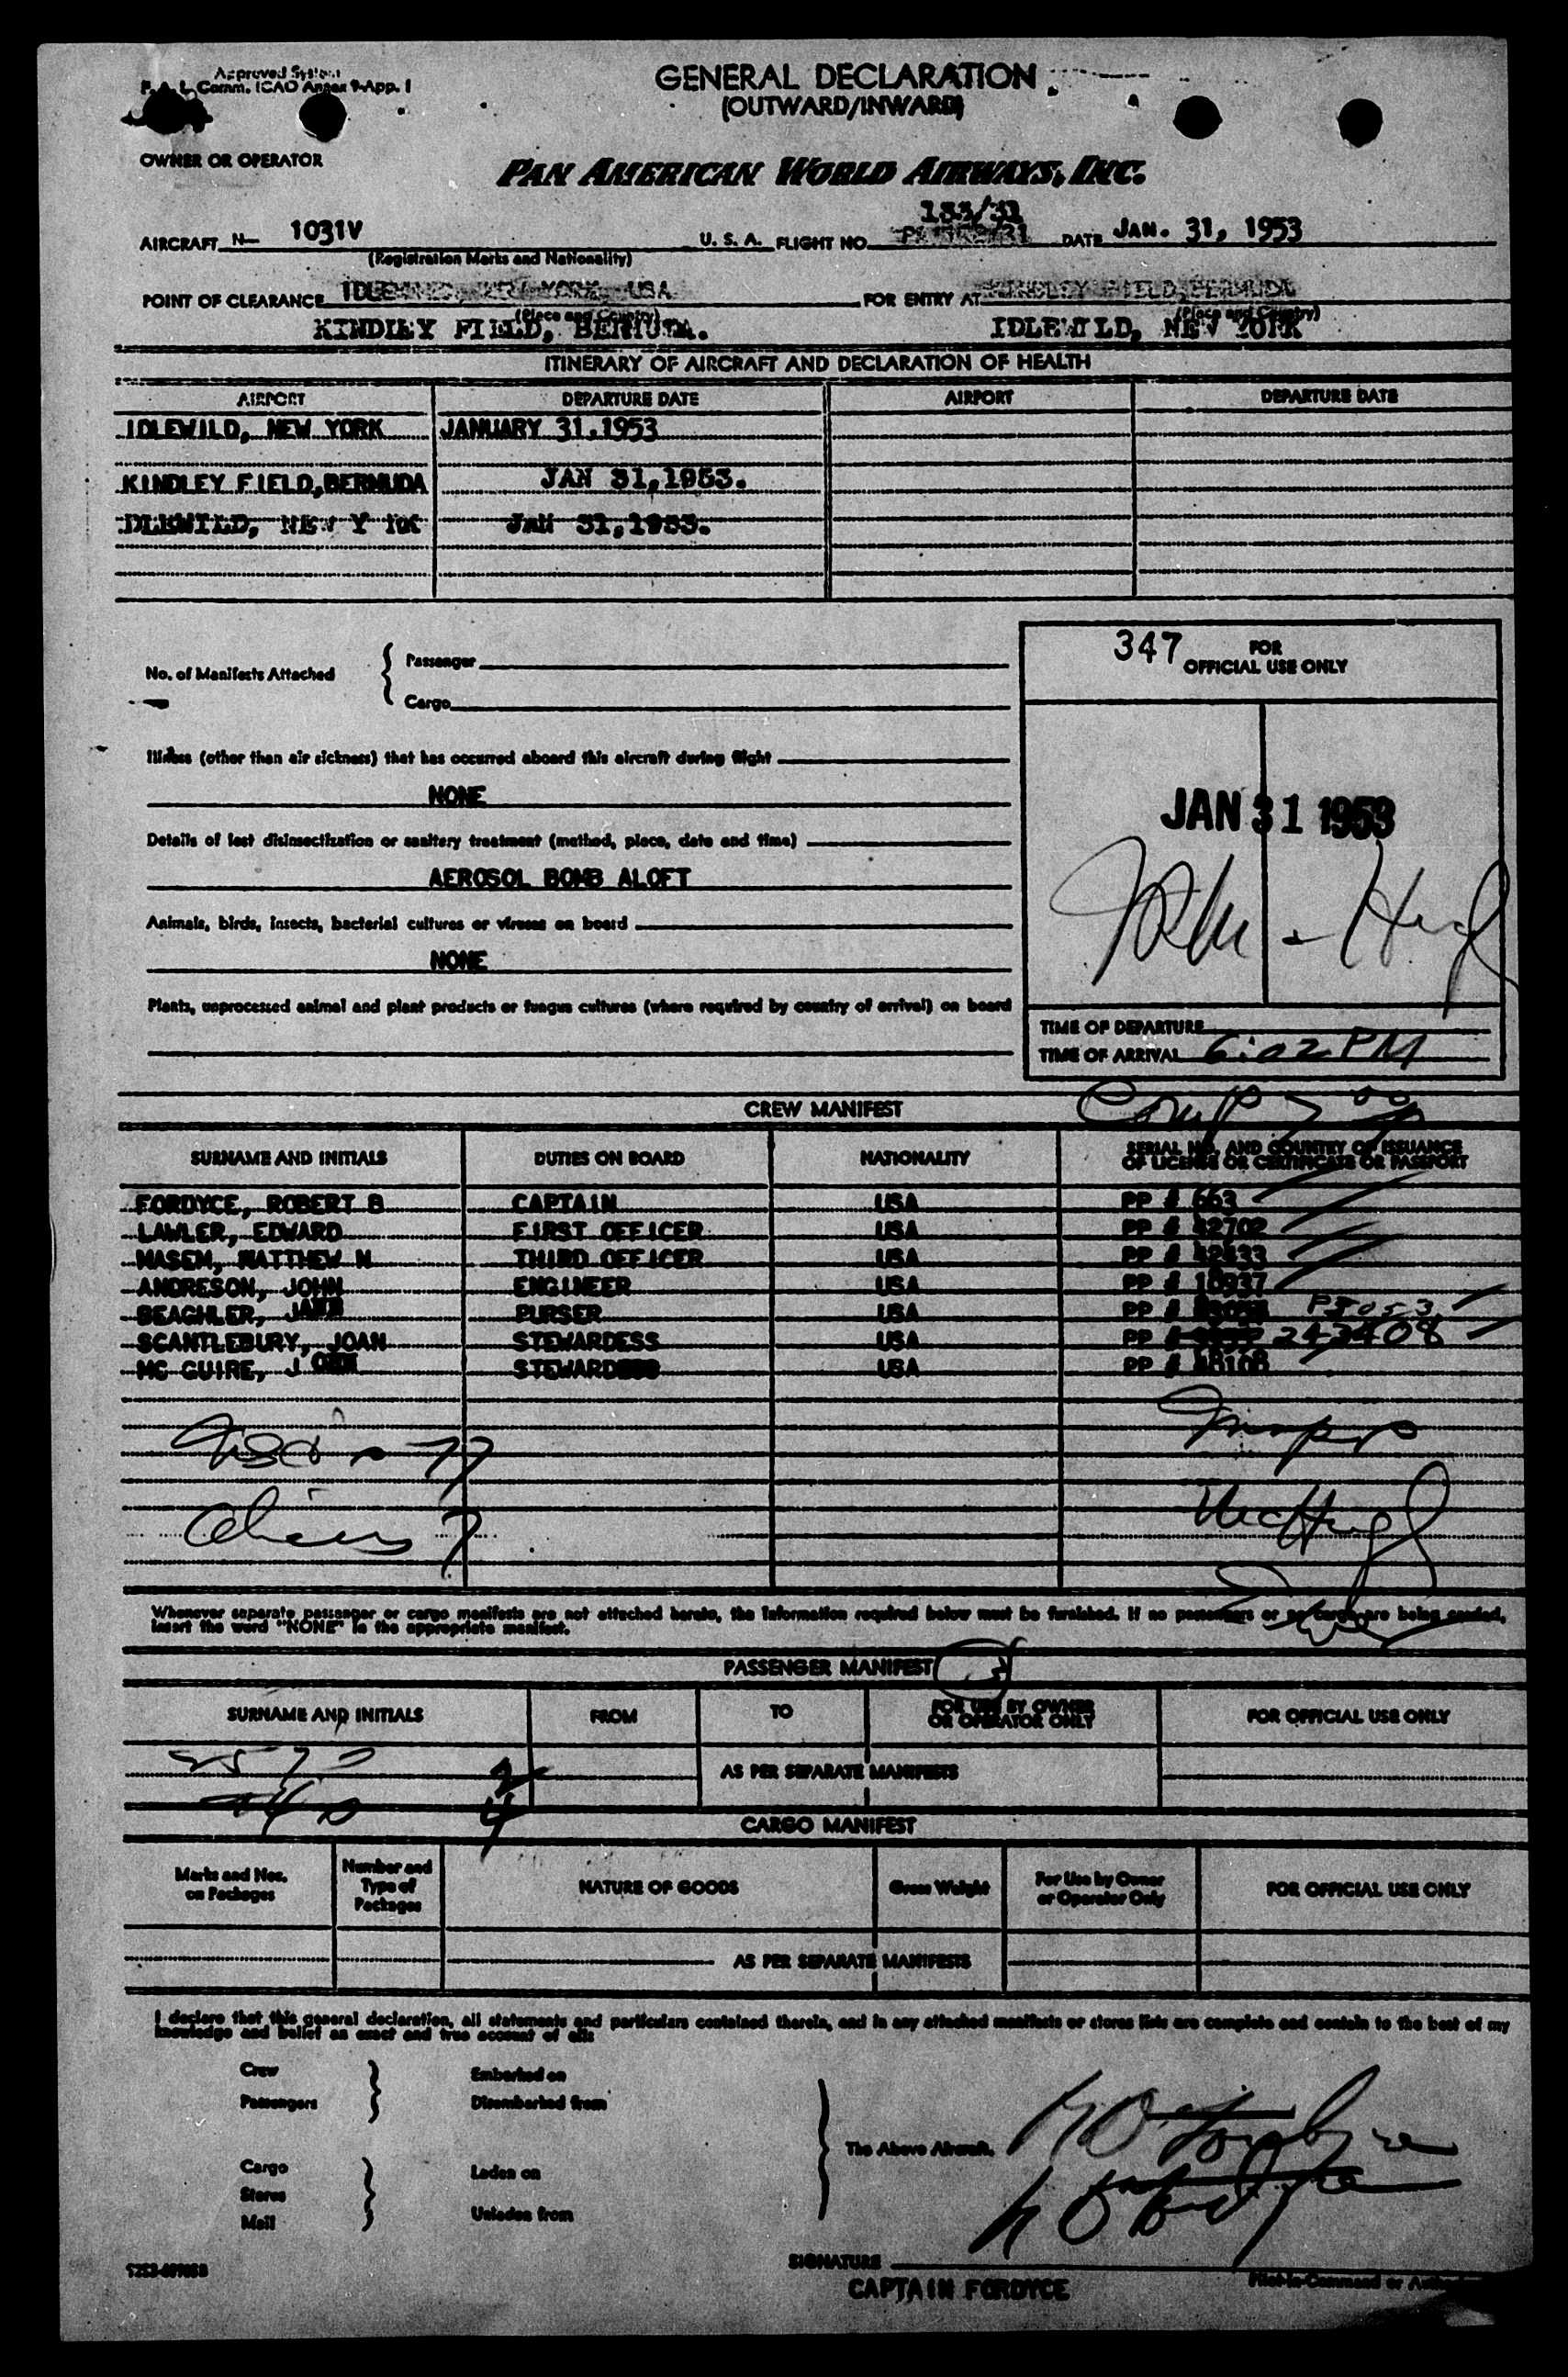 Approved System
F. A. L. Comm. ICAO Annex 9-App. 1
GENERAL DECLARATION
(OUTWARD/INWARD)
OWNER OR OPERATOR
PAN AMERICAN WORLD AIRWAYS, INC.
AIRCRAFT N- 1031V U. S. A. FLIGHT NO. 133/31 DATE JAN. 31, 1953
(Registration Marks and Nationality)
POINT OF CLEARANCE IDLEWILD, NEW YORK, USA FOR ENTRY AT KINDLEY FIELD, BERMUDA
(Place and Country) (Place and Country)
KINDLEY FIELD, BERMUDA. IDLEWILD, NEW YORK
ITINERARY OF AIRCRAFT AND DECLARATION OF HEALTH
AIRPORT DEPARTURE DATE AIRPORT DEPARTURE DATE
IDLEWILD, NEW YORK JANUARY 31,1953
KINDLEY FIELD,BERMUDA JAN 31,1953.
DLEWILD, NEW Y RK JAN 31,1953.
347 FOR
OFFICIAL USE ONLY
No. of Manifests Attached { Passenger
Cargo
Illness (other than air sickness) that has occurred aboard this aircraft during flight
NONE
JAN 31 1953
Details of last disinsectization or sanitary treatment (method, place, date and time)
AEROSOL BOMB ALOFT
Animals, birds, insects, bacterial cultures or viruses on board
NONE
Plants, unprocessed animal and plant products or fungus cultures (where required by country of arrival) on board
TIME OF DEPARTURE
TIME OF ARRIVAL 6:02 PM
CREW MANIFEST
SURNAME AND INITIALS DUTIES ON BOARD NATIONALITY SERIAL NO. AND COUNTRY OF ISSUANCE
OF LICENSE OR CERTIFICATE OR PASSPORT
FORDYCE, ROBERT B CAPTAIN USA PP # 663
LAWLER, EDWARD FIRST OFFICER USA PP # 42702
MASEM, MATTHEW N THIRD OFFICER USA PP # 42433
ANDRESON, JOHN ENGINEER USA PP # 18937
BEAGHLER, JANE PURSER USA PP #
SCANTLEBURY, JOAN STEWARDESS USA PP # 243408
MC GUIRE, J STEWARDESS USA PP # 48108
McHugh
Whenever separate passenger or cargo manifests are not attached hereto, the information required below must be furnished. If no passengers or no cargo are being carried,
insert the word "NONE" in the appropriate manifest.
PASSENGER MANIFEST
SURNAME AND INITIALS FROM TO FOR USE BY OWNER
OR OPERATOR ONLY FOR OFFICIAL USE ONLY
AS PER SEPARATE MANIFESTS
CARGO MANIFEST
Marks and Nos.
on Packages Number and
Type of
Packages NATURE OF GOODS Gross Weight For Use by Owner
or Operator Only FOR OFFICIAL USE ONLY
AS PER SEPARATE MANIFESTS
I declare that this general declaration, all statements and particulars contained therein, and in any attached manifests or stores lists are complete and contain to the best of my
knowledge and belief an exact and true account of all:
Crew } Embarked on
Passengers Disembarked from
The Above Aircraft.
Cargo
Stores } Laden on
Mail Unladen from
SIGNATURE
CAPTAIN FORDYCE
Pilot-in-Command or